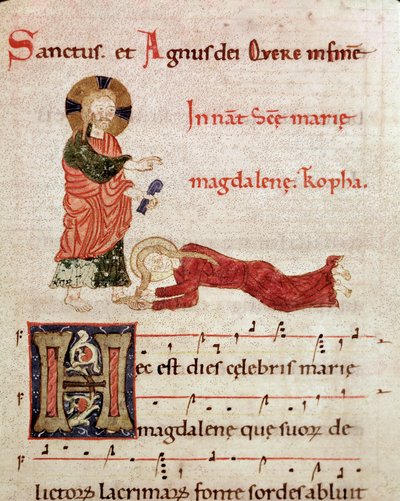 Sanctus. et Agnus dei Quere in fine
In nat̄ Sc̄ę marię
magdalenę. k̄opha.
Hec est dies cęlebris marię
magdalene que suoꝝ de
lictoꝝ lacrimaꝝ fonte sordes abluit